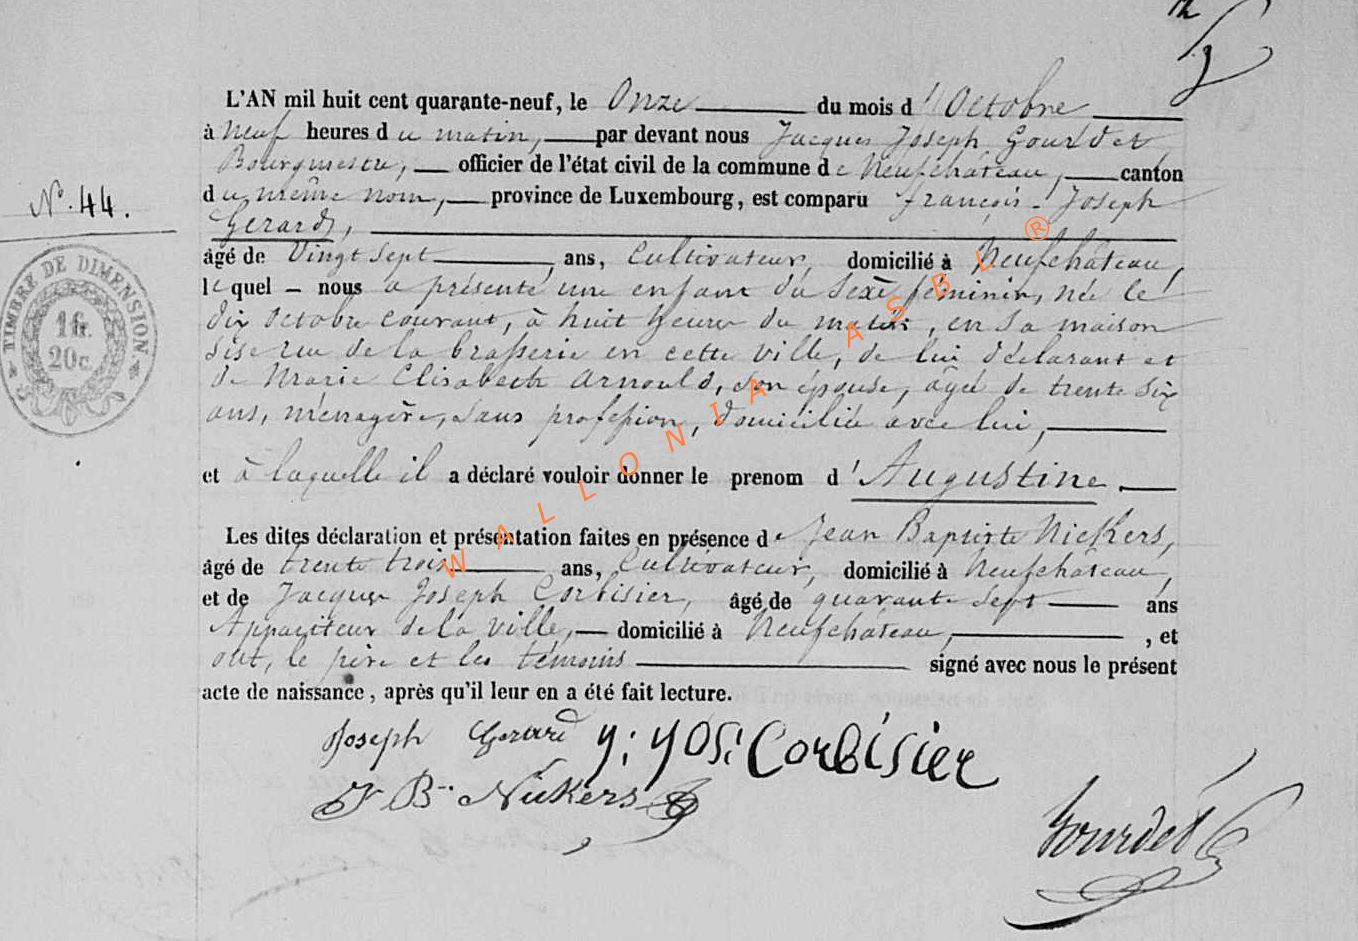 L'AN mil huit cent quarante-neuf, le Onze du mois d'Octobre
à neuf heures du matin, par devant nous Jacques Joseph Gourdet
Bourgmestre, officier de l'état civil de la commune de Neufchâteau, canton
du même nom, province de Luxembourg, est comparu françois-Joseph
N°. 44.
Gerard,
âgé de Vingt Sept ans, Cultivateur, domicilié à Neufchâteau,
lequel – nous a présenté une enfant du Sexe féminin, née le
dix Octobre courant, à huit heures du matin, en sa maison
sise rue de la brasserie en cette ville, de lui déclarant et
de Marie Elisabeth Arnould, son épouse, âgée de trente six
ans, ménagère, sans profession, domiciliée avec lui,
et à laquelle il a déclaré vouloir donner le prenom d'Augustine.
Les dites déclaration et présentation faites en présence de Jean Baptiste Nickers,
âgé de trente trois ans, Cultivateur, domicilié à Neufchâteau,
et de Jacques Joseph Corbisier, âgé de quarante Sept ans
Appariteur de la ville, domicilié à Neufchâteau, , et
ont, le père et les témoins signé avec nous le présent
acte de naissance, après qu'il leur en a été fait lecture.
Joseph Gerard J: Jos: Corbisier
J B.. Nickers
Gourdet
TIMBRE DE DIMENSION.
1fr.
20c.
WALLONIA ASBL ®